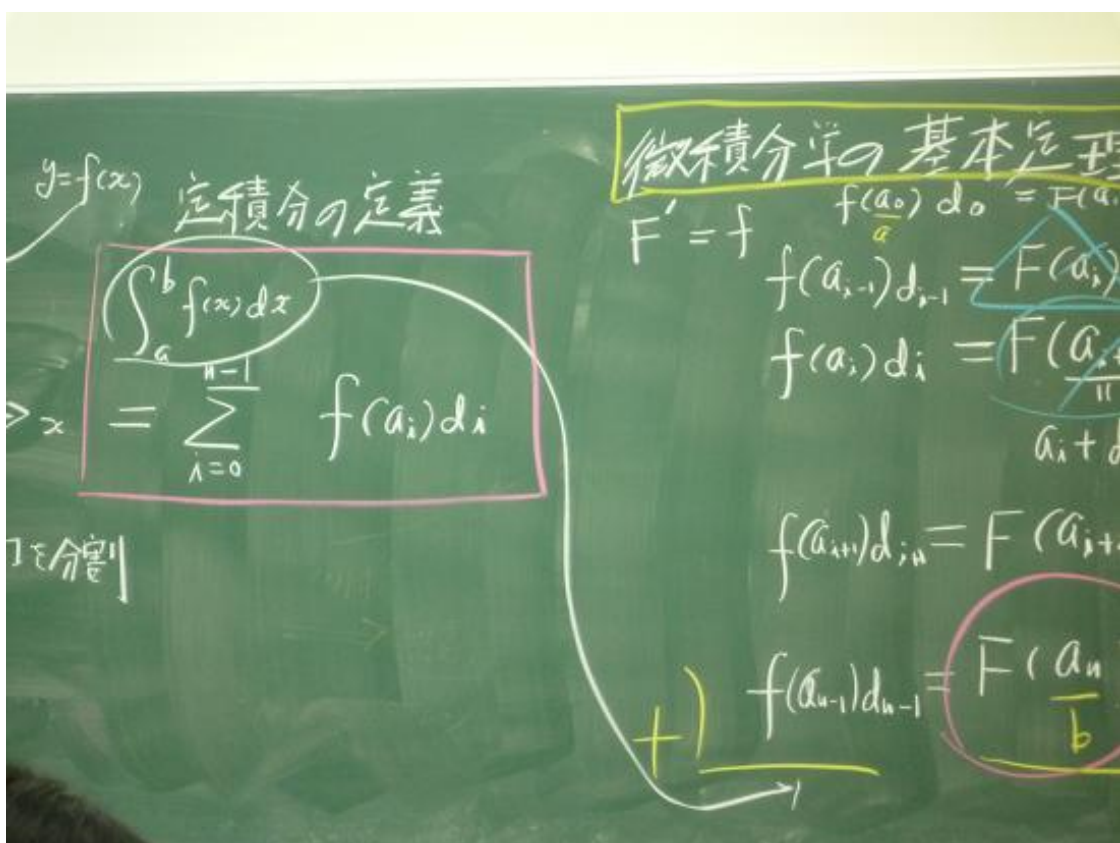 y=f(x)
定積分の定義
∫_a^b f(x)dx
= Σ_{i=0}^{n-1} f(a_i)d_i
x
を分割
微積分学の基本定理
F'=f
f(a_0)d_0 = F(a
a
f(a_{i-1})d_{i-1} = F(a_i)
f(a_i)d_i = F(a_i
"
a_i+d
f(a_{i+1})d_{i+1} = F(a_{i+
f(a_{n-1})d_{n-1} = F(a_n
b
+)